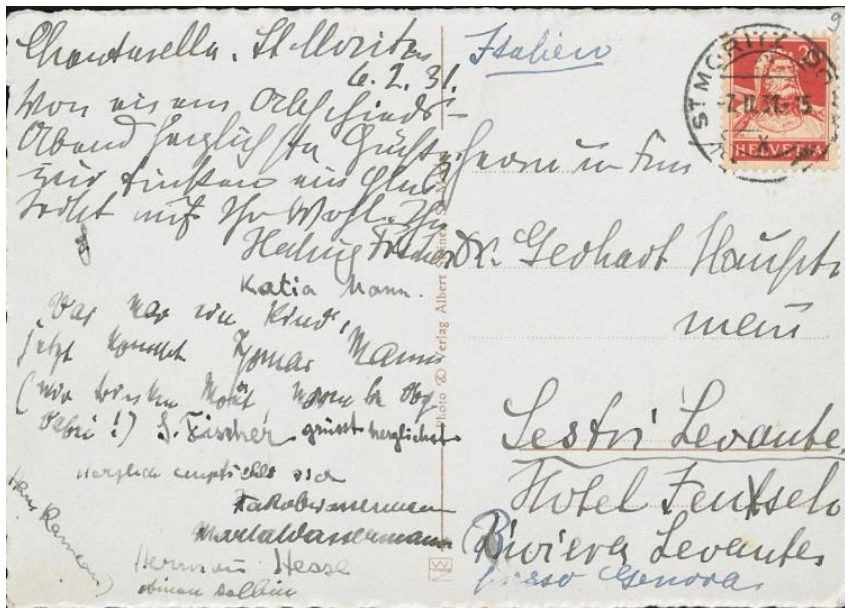 Chantarella. St. Moritz
6. 2. 31.
Von einem Abschieds-
Abend herzlich
trinken ein Glas
auf Ihr Wohl. Ihre
Hedwig Fischer
Katia Mann.
Das war ein Kind,
jetzt kommt Thomas Mann
(wir trinken Moët
dabei!) S. Fischer grüsst herzlichst
Herzlich empfiehlt sich
Jakob Wassermann
Marta Wassermann
Hermann Hesse
Hans
Photo & Verlag Albert Steiner St. Moritz
Italien
9
ST. MORITZ
-7. II. 31.-15
20
HELVETIA
Herrn u Frau
Dr. Gerhart Haupt-
mann
Sestri Levante,
Hotel Jensch
Riviera Levante
presso Genova